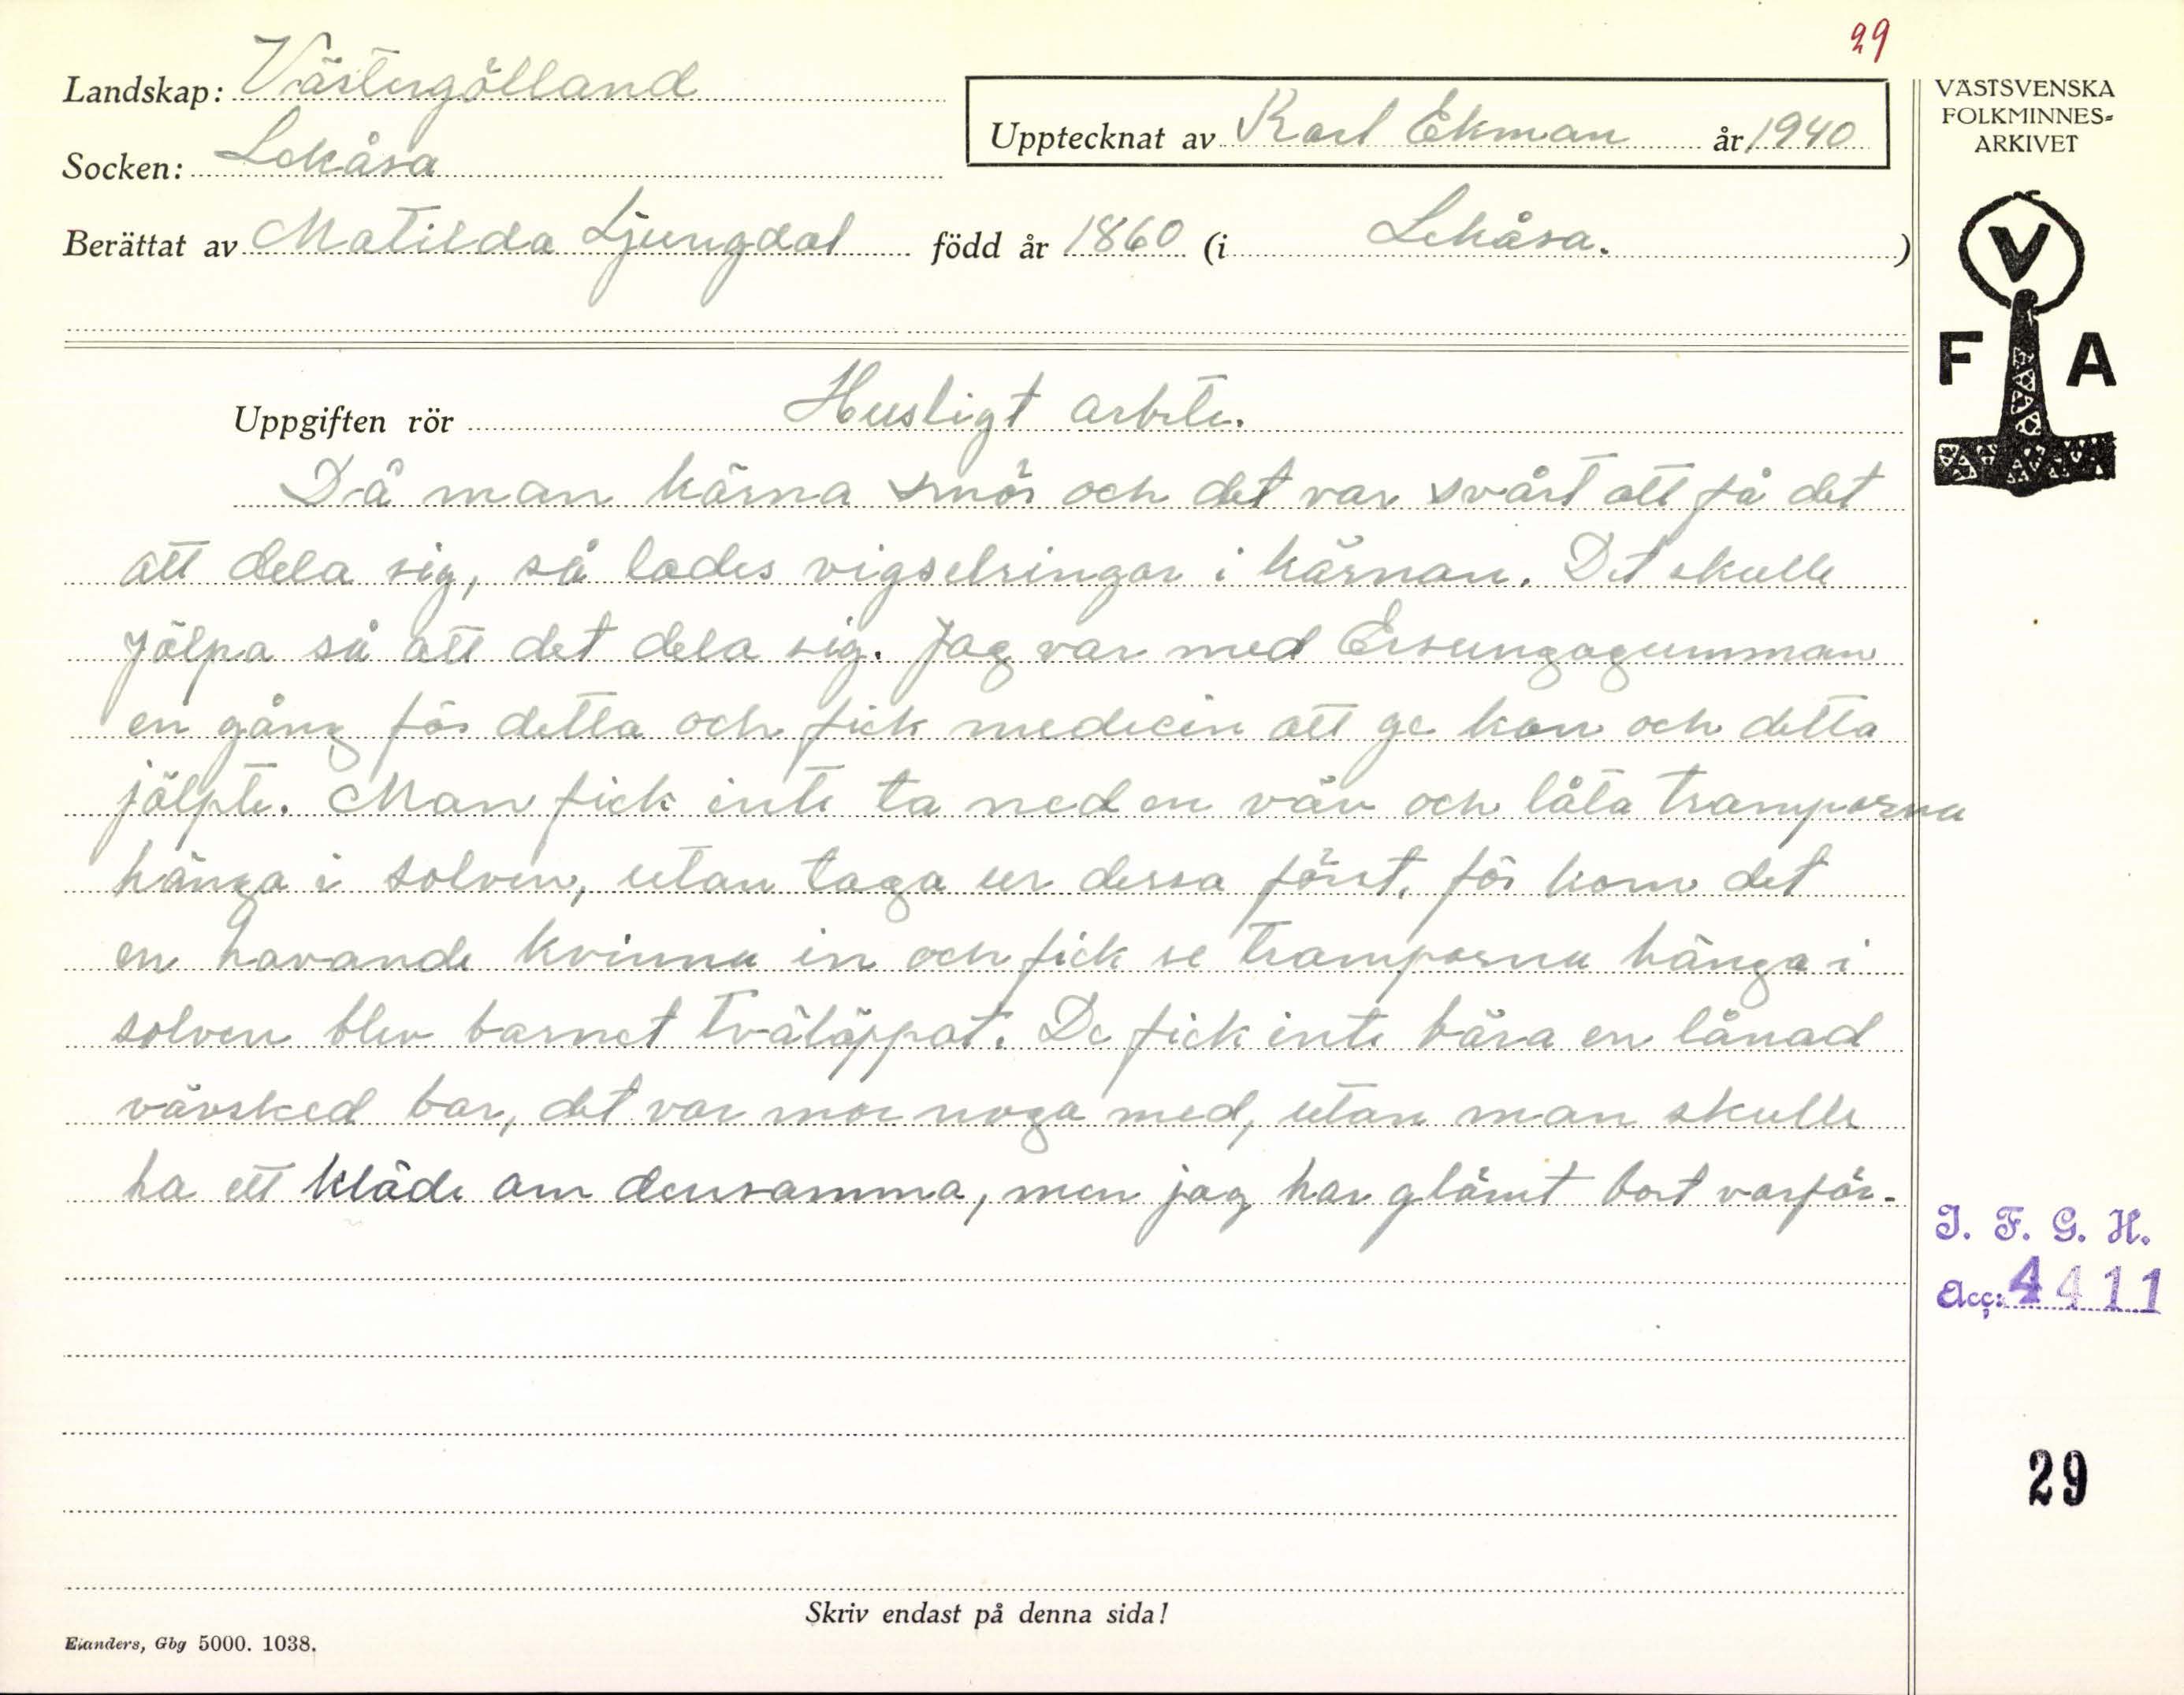 29
Landskap: Västergötland
Socken: Lekåsa
Upptecknat av Karl Ekman år 1940
Berättat av Matilda Ljungdal född år 1860 (i Lekåsa. )
VÄSTSVENSKA
FOLKMINNES=
ARKIVET
V
F A
Uppgiften rör Husligt arbete.
Då man kärna smör och det var svårt att få det
att dela sig, så lades vigselringar i kärnan. Det skulle
jölpa så att det dela sig. Jag var med Ersungagumman
en gång för detta och fick medecin att ge kon och detta
jölpte. Man fick inte ta ned en väv och låta tramporna
hänga i solven, utan taga ur dessa först, för kom det
en havande kvinna in och fick se tramporna hänga i
solven blev barnet tväläppat. De fick inte bära en lånad
vävsked bar, det var mor noga med, utan man skulle
ha ett kläde om densamma, men jag har glömt bort varför.
I. F. G. H.
Acc: 4411
29
Skriv endast på denna sida!
Elanders, Gbg 5000. 1038.